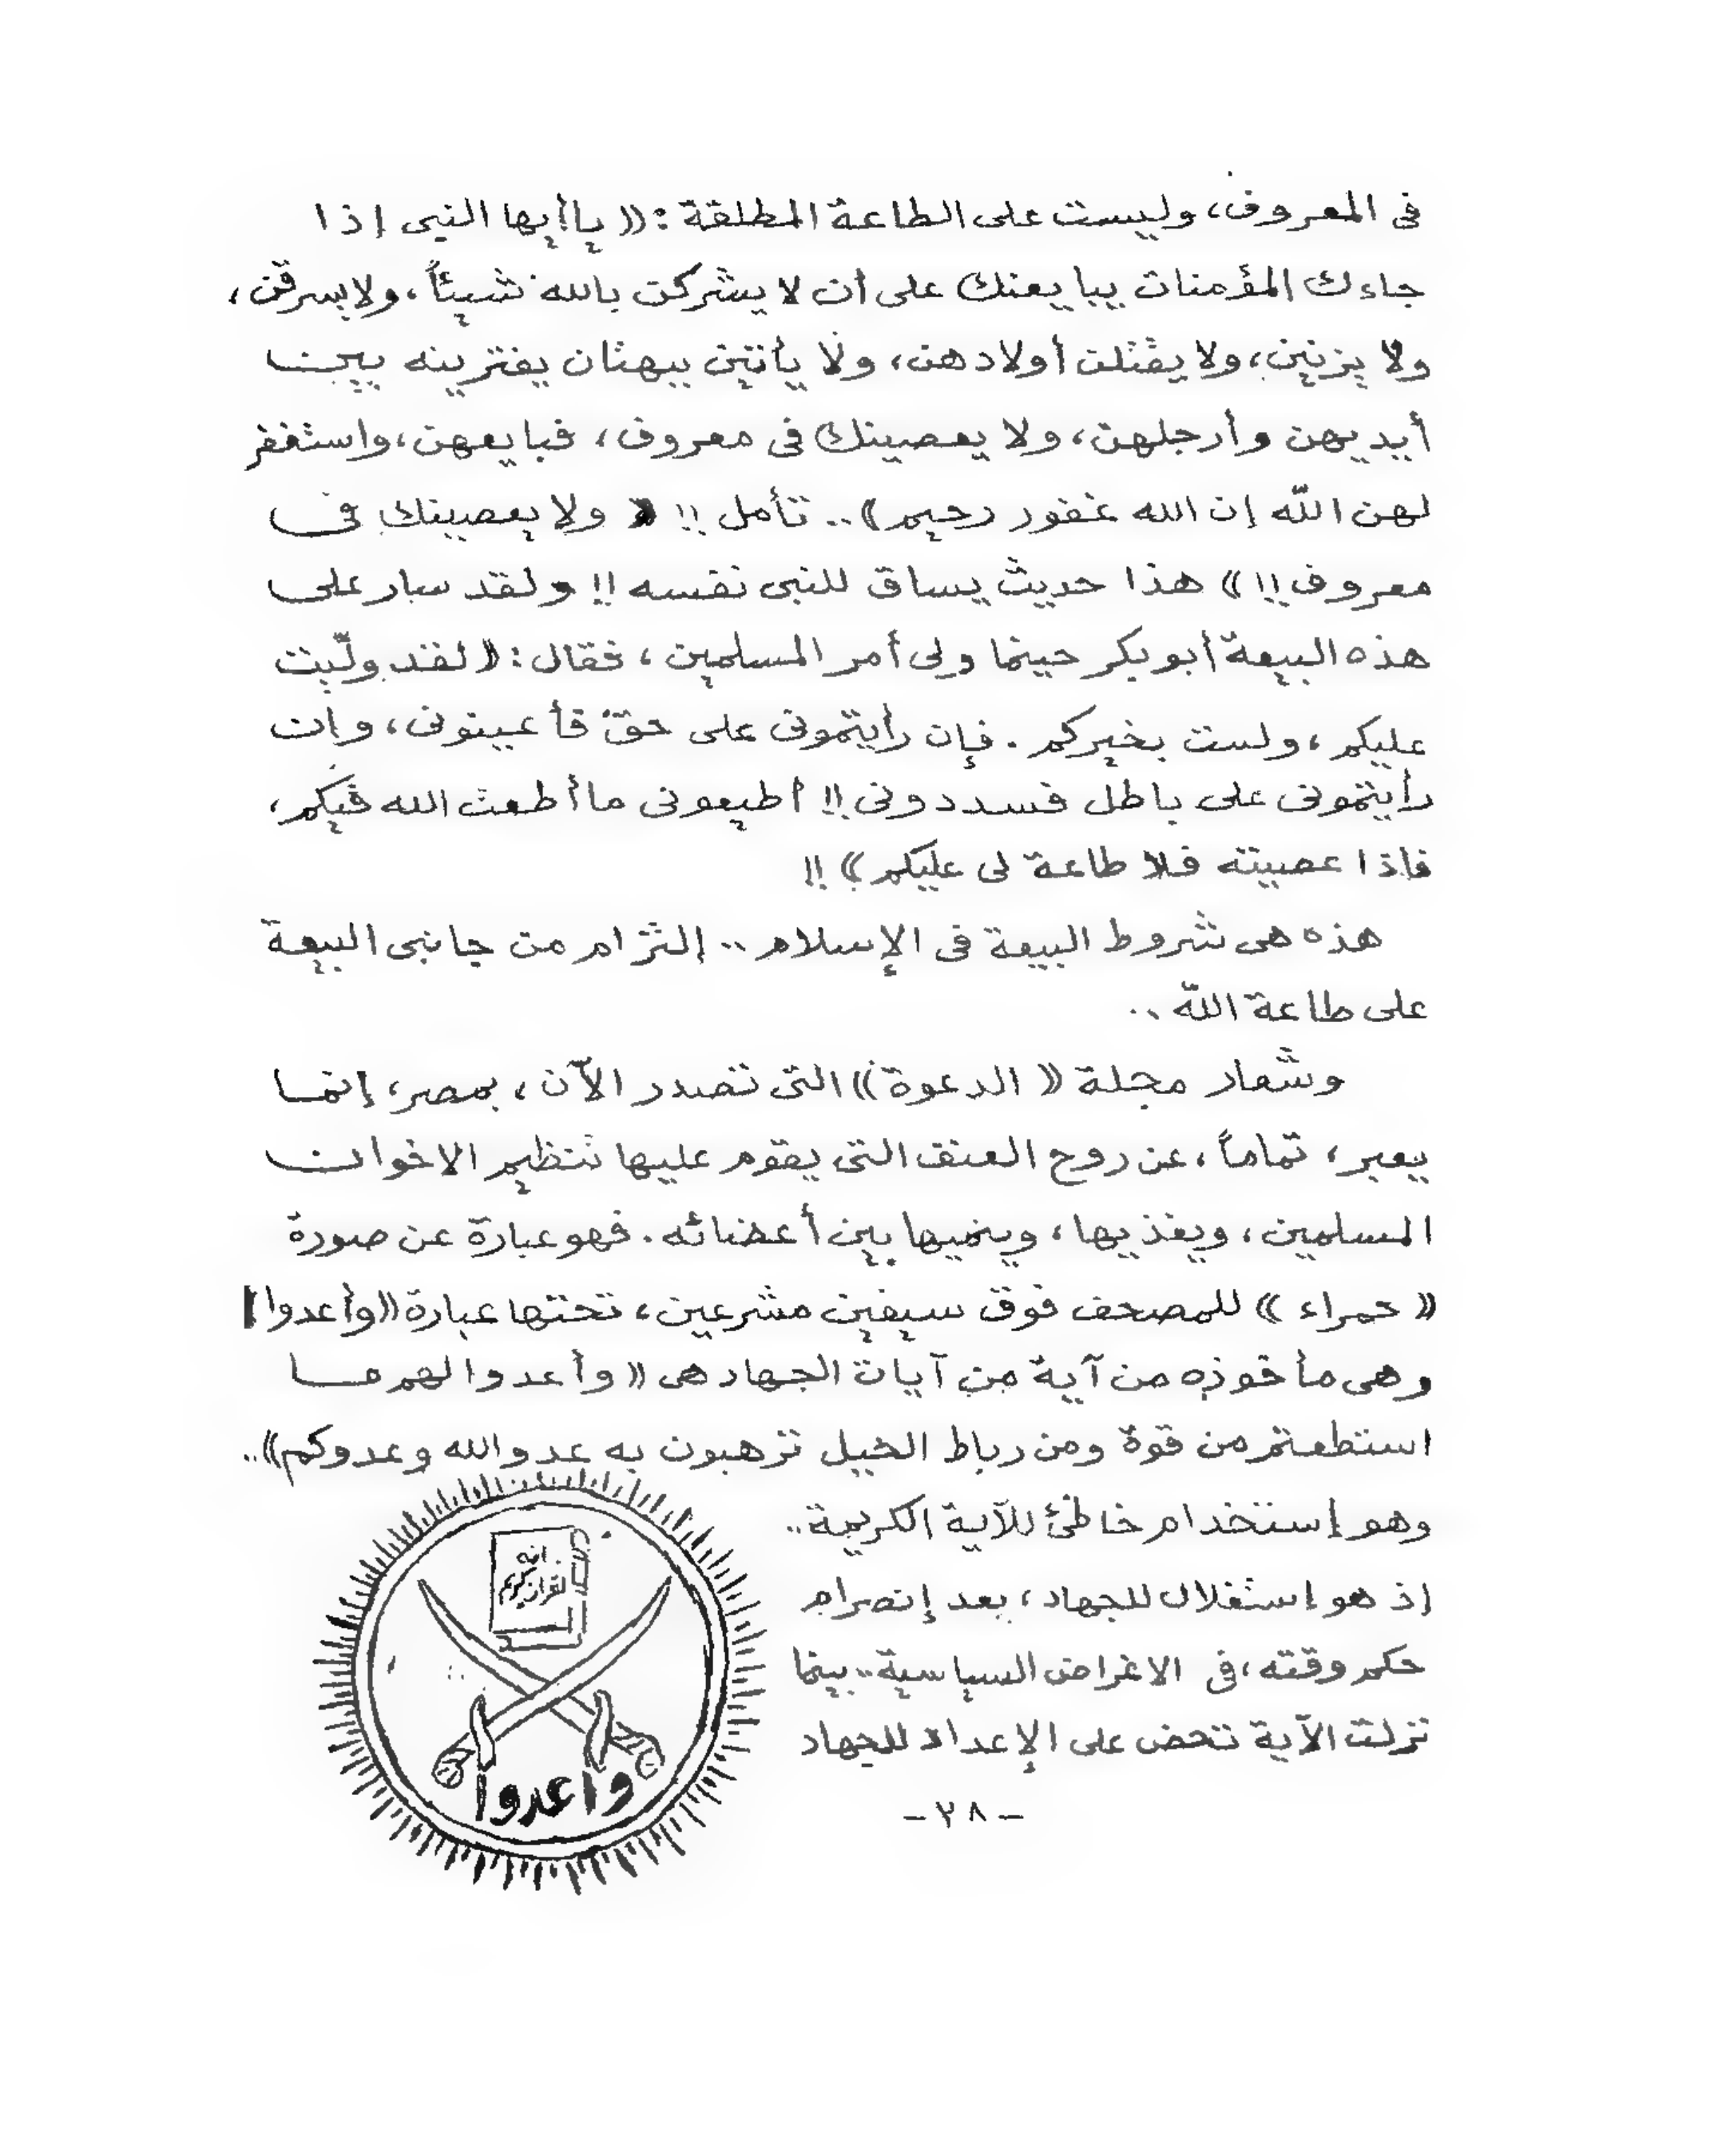 فى المعروف، وليست على الطاعة المطلقة: (( ياأيها النبى إذا
جاءك المؤمنات يبايعنك على أن لا يشركن بالله شيئاً، ولا يسرقن،
ولا يزنين، ولا يقتلن أولادهن، ولا يأتين ببهتان يفترينه بين
أيديهن وأرجلهن، ولا يعصينك فى معروف، فبايعهن، واستغفر
لهن اللّه إن الله غفور رحيم )) .. تأمل !! (( ولا يعصينك فى
معروف !! )) هذا حديث يساق للنبى نفسه !! ولقد سار على
هذه البيعة أبو بكر حينما ولى أمر المسلمين، فقال: (( لقد ولّيت
عليكم، ولست بخيركم. فإن رأيتمونى على حق فأعينونى، وإن
رأيتمونى على باطل فسددونى !! أطيعونى ما أطعت الله فيكم،
فإذا عصيته فلا طاعة لى عليكم )) !!
هذه هى شروط البيعة فى الإسلام .. إلتزام من جانبى البيعة
على طاعة اللّه ..
وشعار مجلة (( الدعوة )) التى تصدر الآن، بمصر، إنما
يعبر، تماماً، عن روح العنف التى يقوم عليها تنظيم الاخوان
المسلمين، ويغذيها، وينميها بين أعضائه. فهو عبارة عن صورة
(( حمراء )) للمصحف فوق سيفين مشرعين، تحتها عبارة (( وأعدوا ))
وهى مأخوذه من آية من آيات الجهاد هى (( وأعدوا لهم ما
استطعتم من قوة ومن رباط الخيل ترهبون به عدو الله وعدوكم )) ..
وهو إستخدام خاطئ للآية الكريمة ..
إذ هو إستغلال للجهاد، بعد إنصرام
حكم وقته، فى الاغراض السياسية .. بينما
نزلت الآية تحض على الإعداد للجهاد
انه
لقرآن كريم
واعدوا
- ٢٨ -